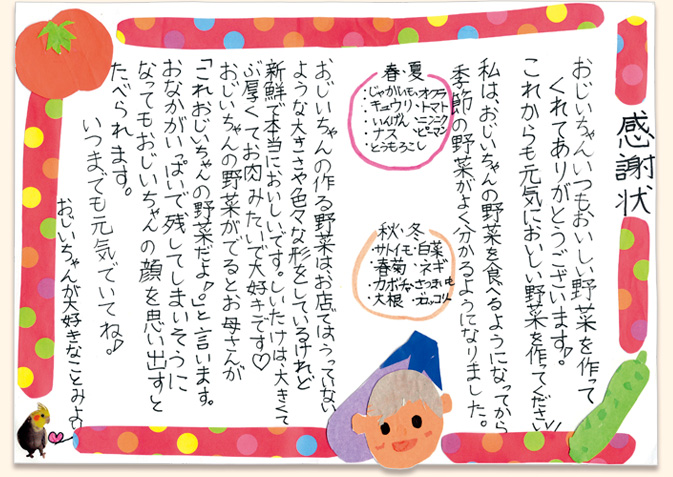 感謝状
おじいちゃんいつもおいしい野菜を作って
くれてありがとうございます。
これからも元気においしい野菜を作ってください
私は、おじいちゃんの野菜を食べるようになってから
季節の野菜がよく分かるようになりました。
春・夏
・じゃがいも・オクラ
・キュウリ・トマト
・いんげん・ニンニク
・ナス・ピーマン
・とうもろこし
秋・冬
・サトイモ・白菜
・春菊・ネギ
・カボチャ・さつまいも
・大根・ブロッコリー
おじいちゃんの作る野菜は、お店ではうっていない
ような大きさや色々な形をしているけれど
新鮮で本当においしいです。しいたけは、大きくて
ぶ厚くてお肉みたいで大好きです♡
おじいちゃんの野菜がでるとお母さんが
「これおじいちゃんの野菜だよ。」と言います。
おなかがいっぱいで残してしまいそうに
なってもおじいちゃんの顔を思い出すと
たべられます。
いつまでも元気でいてね♪
おじいちゃんが大好きなことみより